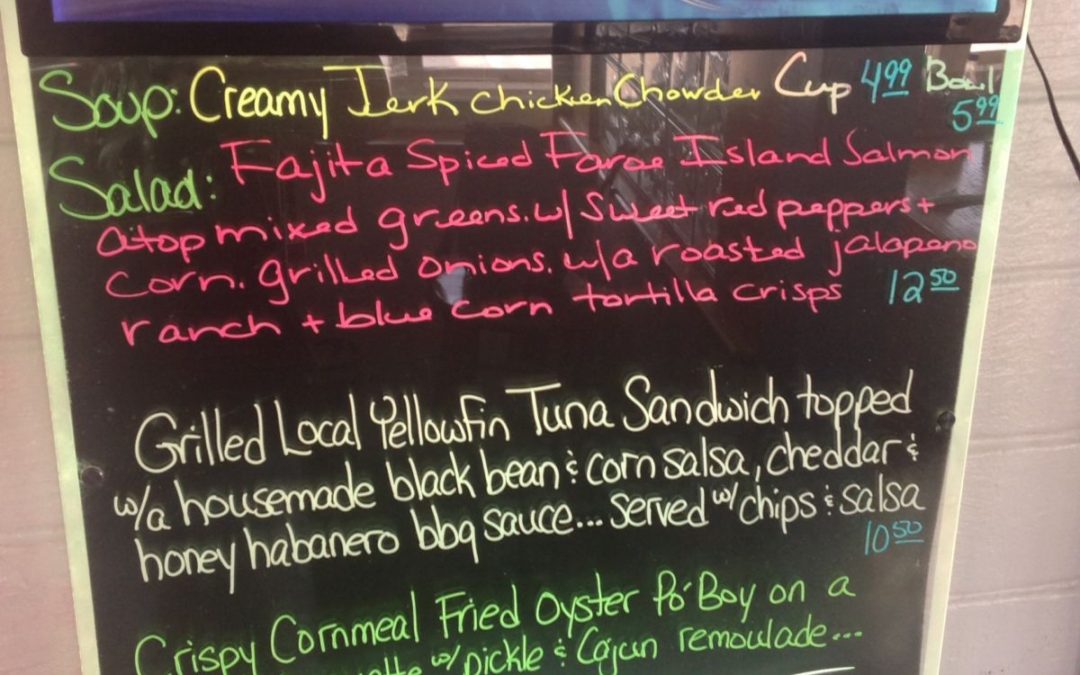 Soup: Creamy Jerk Chicken Chowder Cup 4.99 Bowl
5.99
Salad: Fajita Spiced Faroe Island Salmon
atop mixed greens. w/ Sweet red peppers +
Corn. grilled onions. w/a roasted jalapeno
ranch + blue corn tortilla crisps 12.50
Grilled Local Yellowfin Tuna Sandwich topped
w/a housemade black bean & corn salsa, cheddar &
honey habanero bbq sauce... served w/ chips & salsa
10.50
Crispy Cornmeal Fried Oyster Po'Boy on a
w/ pickle & Cajun remoulade...